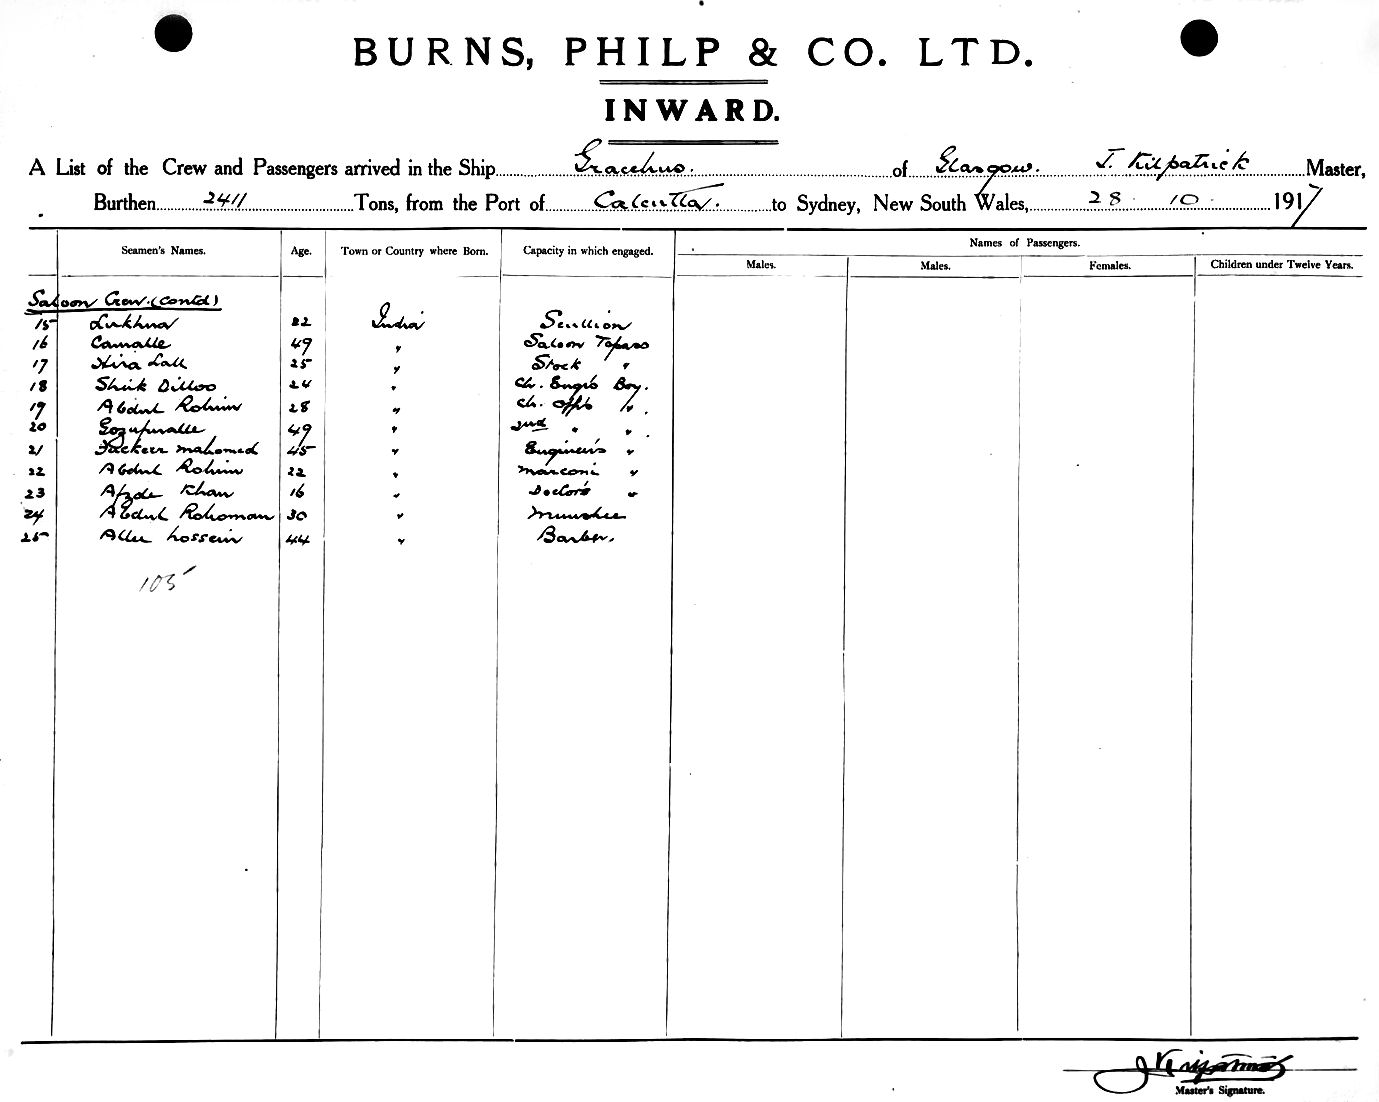 BURNS, PHILP & CO. LTD.
INWARD.
A List of the Crew and Passengers arrived in the Ship Gracchus. of Glasgow. J. Kilpatrick Master,
Burthen 2411 Tons, from the Port of Calcutta. to Sydney, New South Wales, 28. 10. 1917
Names of Passengers.
Seamen's Names. Age. Town or Country where Born. Capacity in which engaged. Males. Males. Females. Children under Twelve Years.
Saloon Crew. (contd)
15 Lukhna 22 India Scullion
16 Camalle 49 " Saloon Topass
17 Hira Lall 25 " Stock "
18 Sheik Dilloo 24 " Ch. Engrs Boy.
19 Abdul Rohim 28 " Ch. Offs ".
20 49 " 2nd " ".
21 Fackeer mahomed 45 " Engineers "
22 Abdul Rohim 22 " marconi "
23 Afzde Khan 16 " Doctors "
24 Abdul Rohoman 30 " Munshee
25 Aller hossein 44 " Barber.
105
J Kilpatrick
Master's Signature.